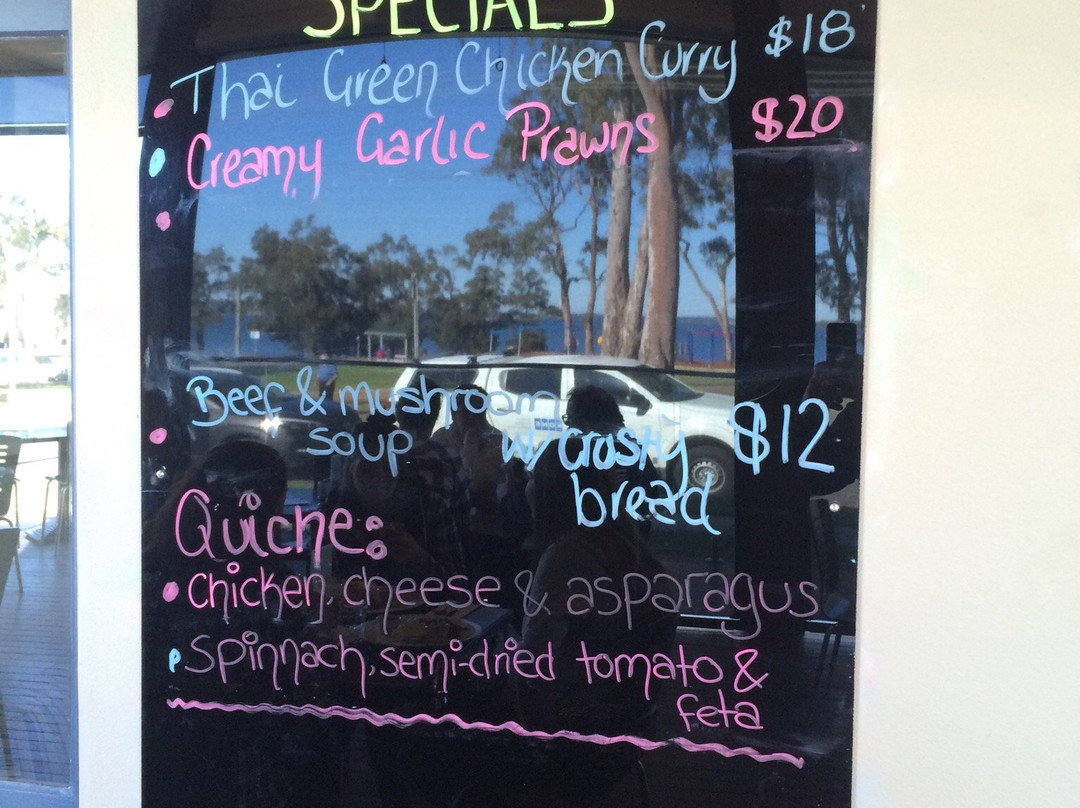 SPECIALS
Thai Green Chicken Curry $18
Creamy Garlic Prawns $20
Beef & mushroom
soup w/ crusty $12
bread
Quiche:
Chicken, cheese & asparagus
Spinnach, semi-dried tomato &
feta